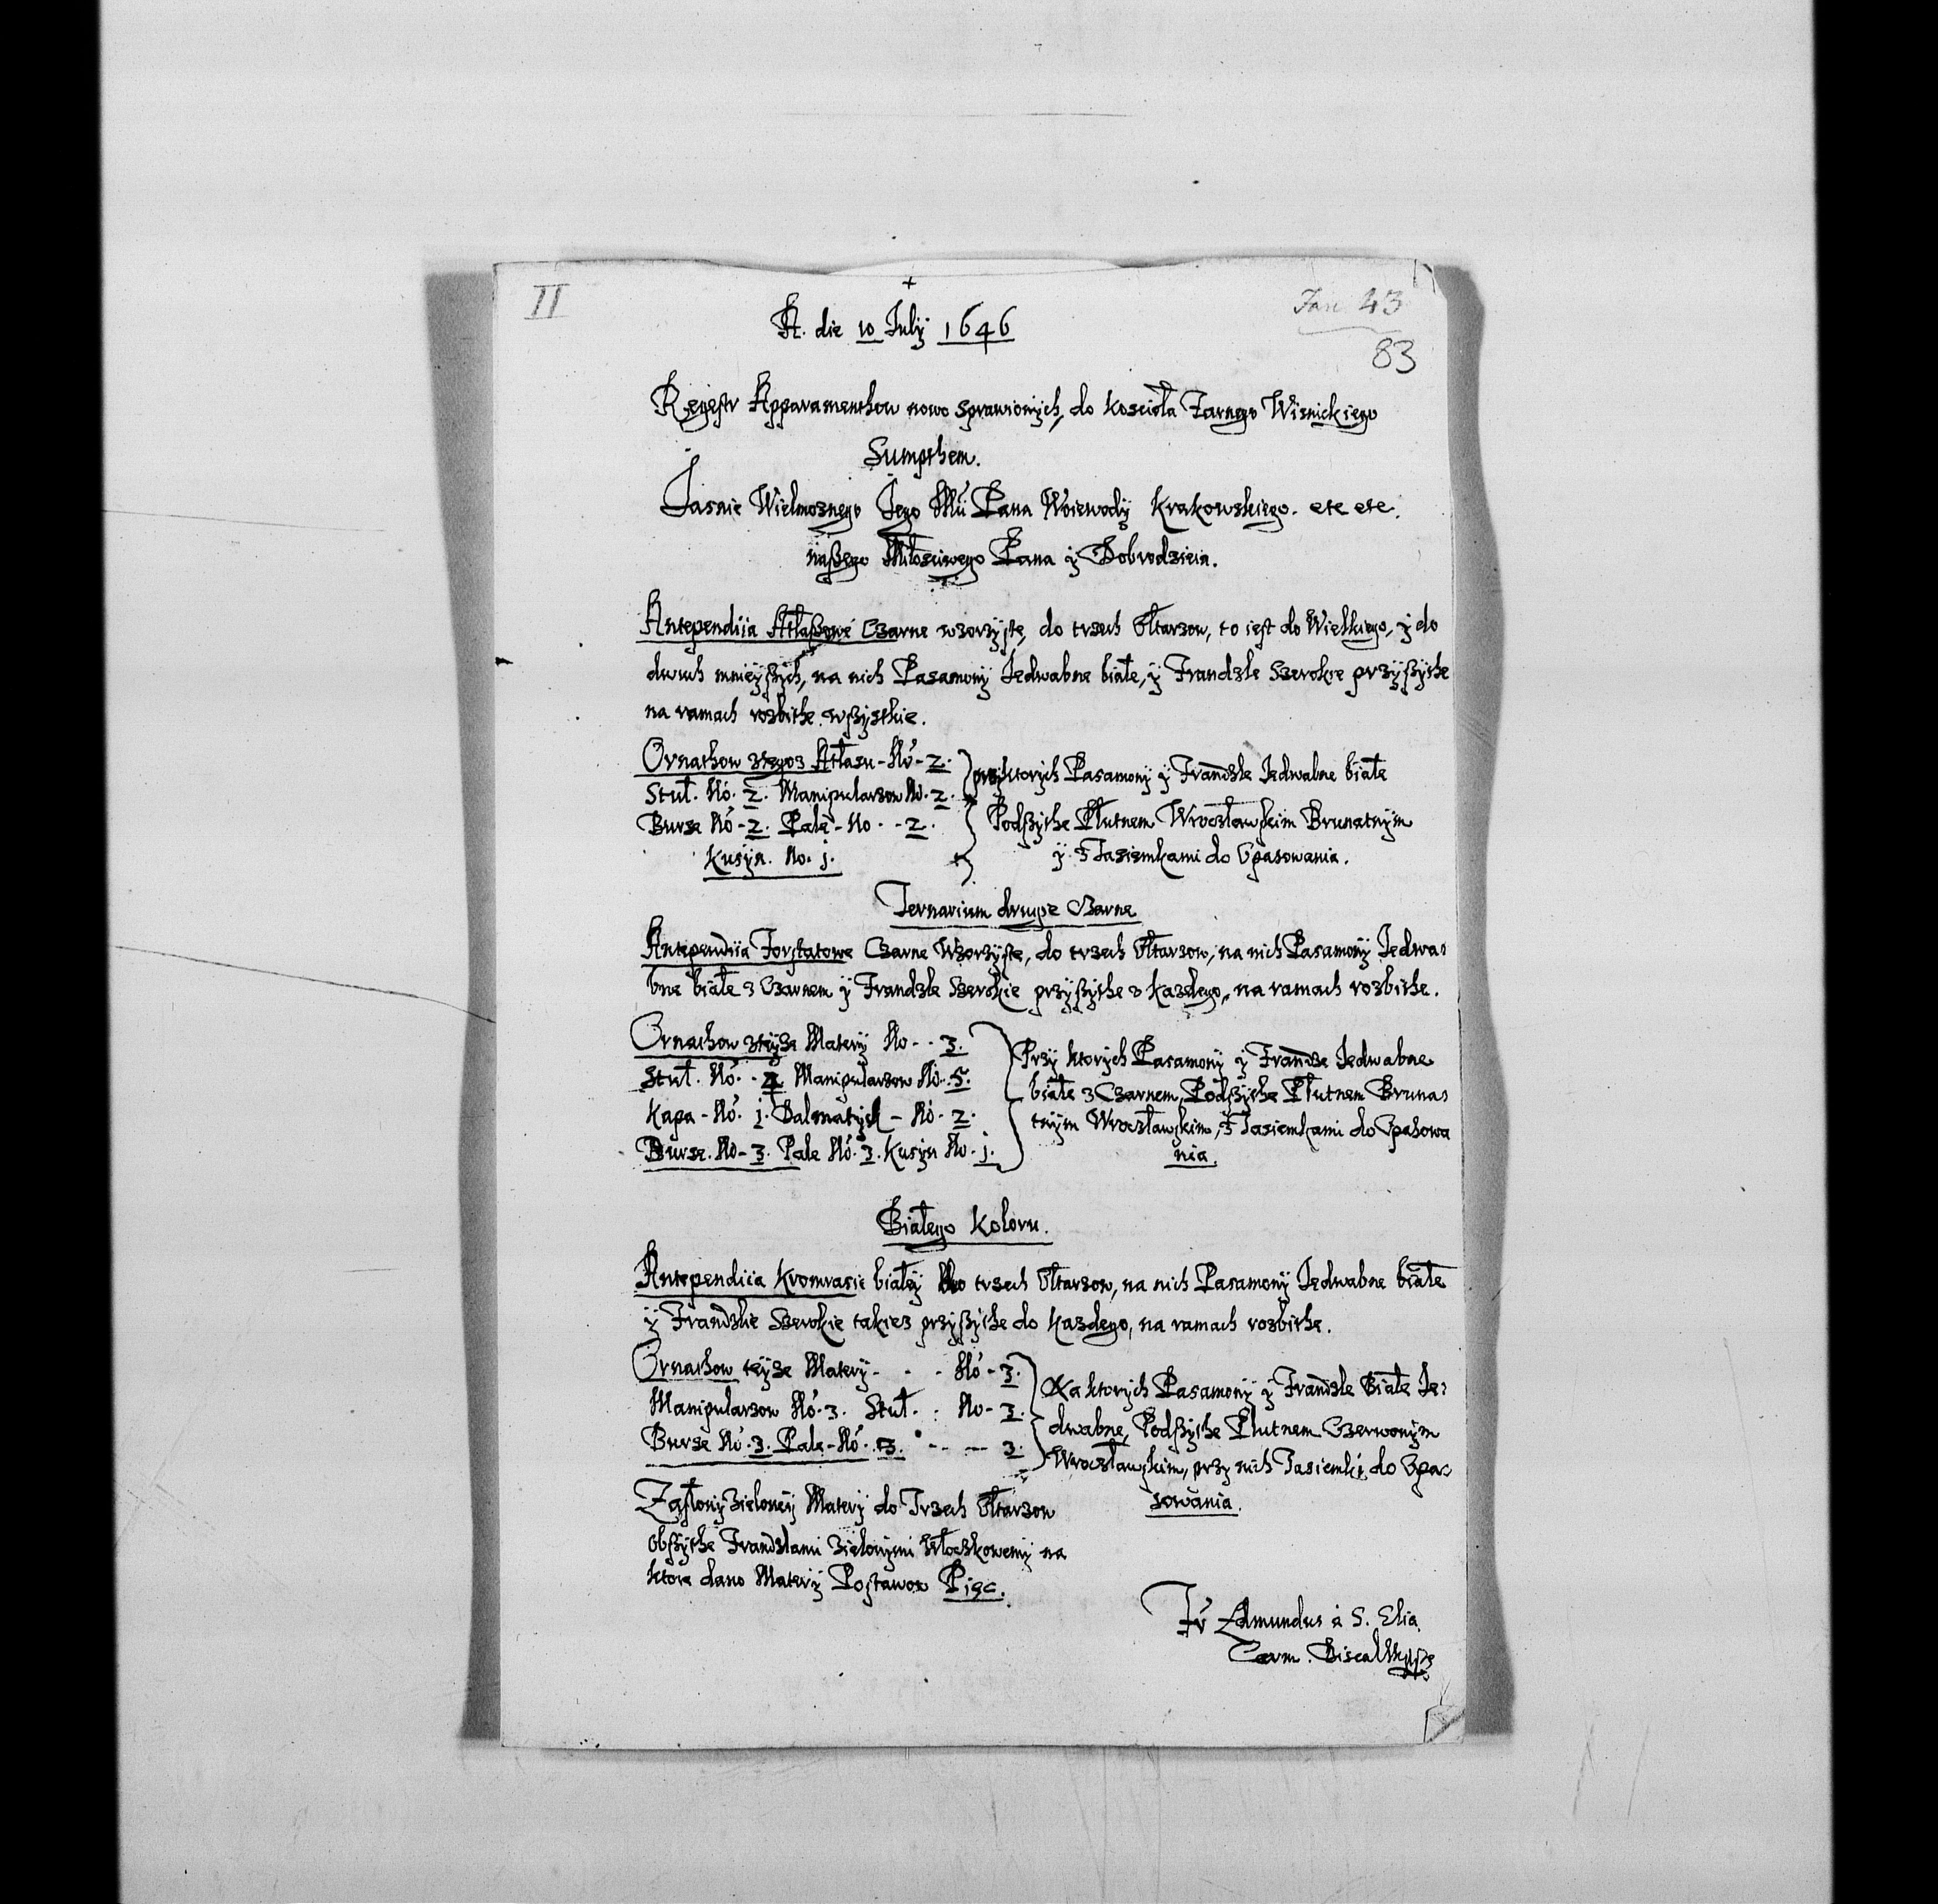 II
Jan 43
83
+
A. die 10 July 1646
Regestr Apparamenthow nowo sprawionych, do kosciola Farnego Wisnickiego
Sumpthem.
Jasnie Wielmoznego Jego Mci Pana Woiewody Krakowskiego. etc etc.
naßego Miłosciwego Pana ÿ Dobrodzieia.
Antependiia Atłaßowe Czarne wzorzyste, do trzech Ołtarzow, to iest do Wielkiego, ÿ do
dwuch mnieÿßych, na nich Pasamony Jedwabne białe, ÿ Frandzle Szerokie przyßythe
na ramach rozbithe wßystkie.
Ornathow ztegoz Atłasu - No - 2.
Stuł. No. 2. Manipularzow No. 2.
Burse No - 2. Pale - No - - 2.
Kusyn. No. j.
przyktorych Pasamony ÿ Frandzle Jedwabne białe
Podßythe Płutnem Wrocławskim Brunatnym
ÿ z Tasiemkami do Opasowania.
Ternarium drugie Czarne
Antependiia Forstatowe Czarne Wzorzyste, do trzech Ołtarzow, na nich Pasamony Jedwa:
bne białe z Czarnem ÿ Frandzle Szerokie przyßythe v kazdego, na ramach rozbithe.
Ornathow zteyze Matery No - - 3.
Stuł. No. - 4. Manipularzow No. 5.
Kapa - No. j. Dalmatyk - No. 2.
Burse. No - 3. Pale No. 3. Kusyn No. j.
Przy ktorych Pasamony ÿ Frandze Jedwabne
białe z Czarnem, Podßythe Płutnem Bruna:
tnym Wrocławskim, z Tasiemkami do Opasowa
nia.
Białego Koloru.
Antependiia Kromrasie białey do trzech Ołtarzow, na nich Pasamony Jedwabne białe
ÿ Frandzle Szerokie takiez przyßythe do kazdego, na ramach rozbithe.
Ornathow teyze Matery - - - No - 3.
Manipularzow No. 3. Stuł. : No - 3.
Burse No. 3. Pale - No. 3. - - - 3.
Na ktorych Pasamony ÿ Frandzle Białe Je:
dwabne, Podßythe Płutnem Czerwonym
Wrocławskim, przy nich Tasiemki do Opa:
sowania.
Zasłony Zieloney Matery do Trzech Ołtarzow
obßythe Frandzlami Zielonymi Włoczkowemy na
ktore dano Matery Postawow Pięc.
Fr Edmundus à S. Elia
Carm. Discal